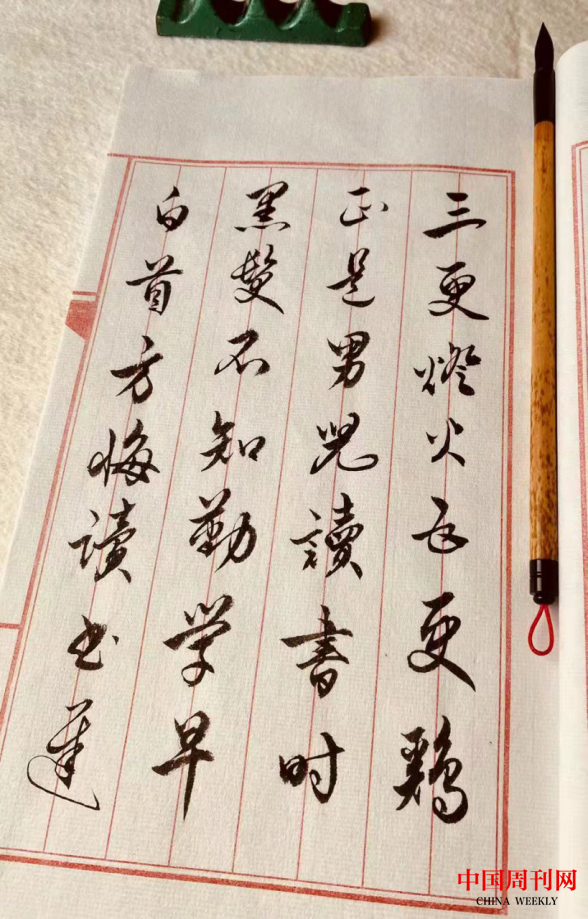 三更燈火五更鷄
正是男兒讀書时
黑髮不知勤学早
白首方悔讀书遲
中国周刊网
CHINA WEEKLY